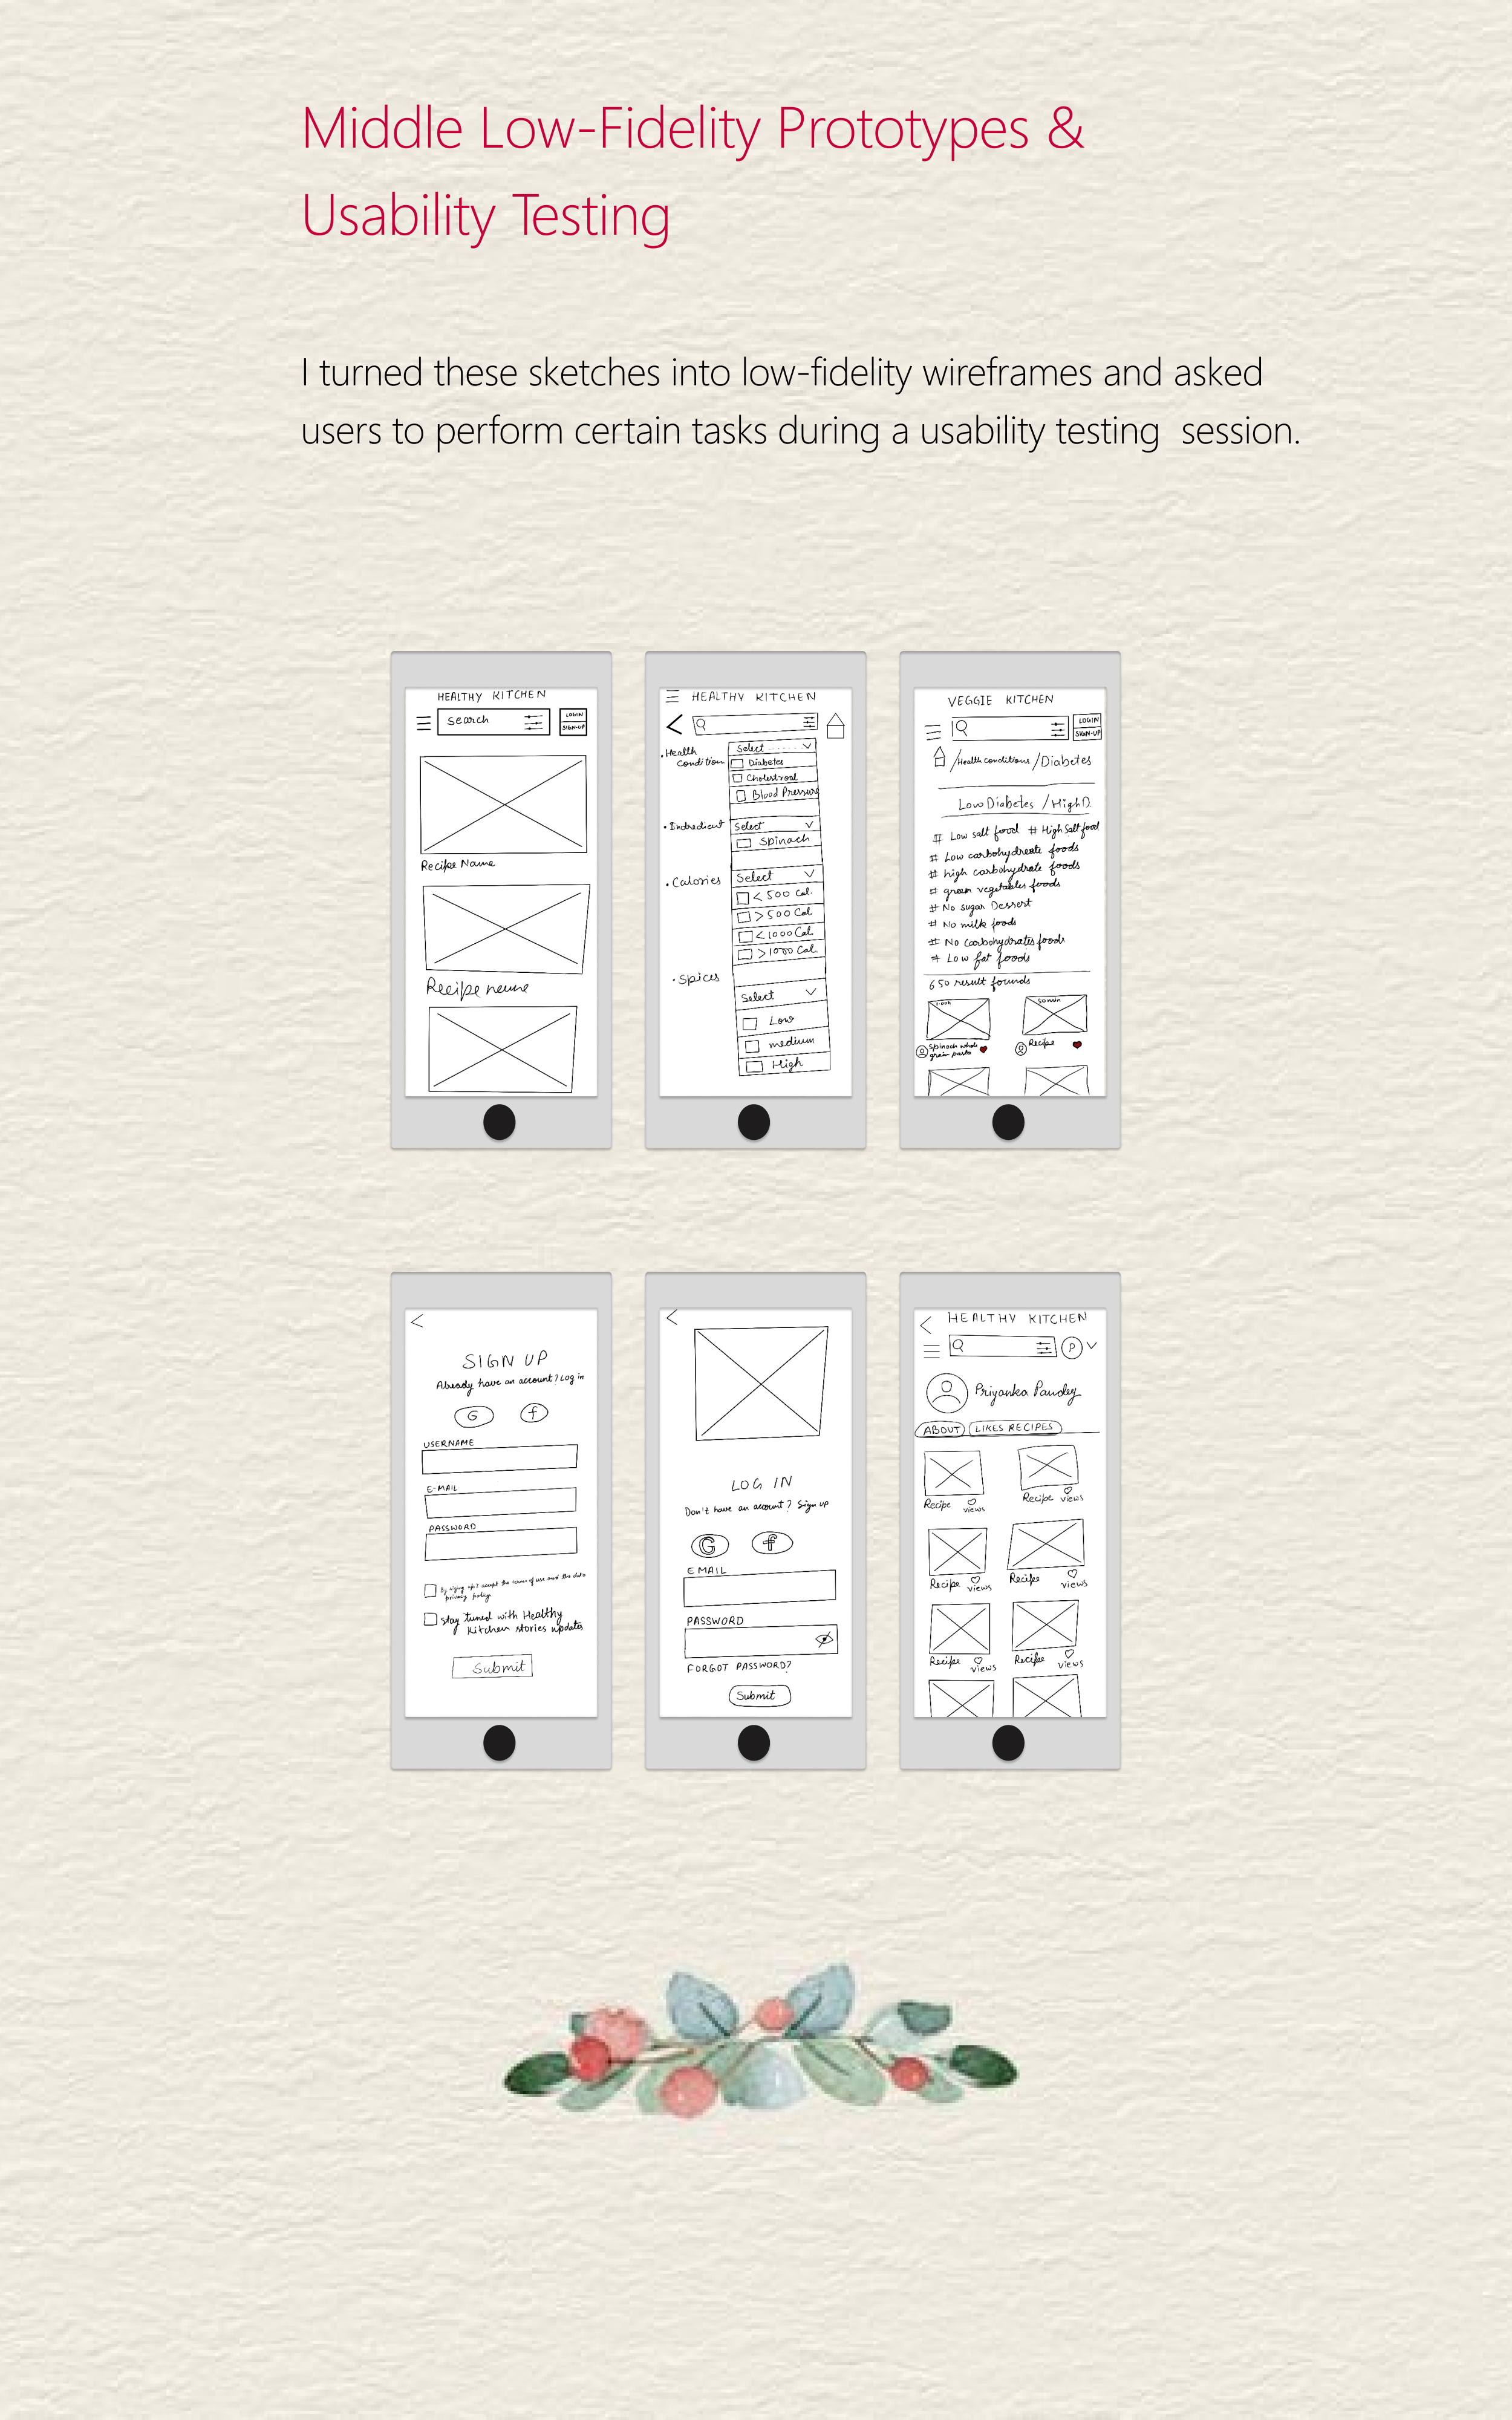 Middle Low-Fidelity Prototypes &
Usability Testing
I turned these sketches into low-fidelity wireframes and asked
users to perform certain tasks during a usability testing  session.
HEALTHY KITCHEN
search
LOGIN
SIGN-UP
Recipe Name
Recipe neme
HEALTHY KITCHEN
Health
condition
Select
Diabetes
Cholestroal
Blood Pressure
Indredient
Select
Spinach
Calories
Select
< 500 Cal.
> 500 Cal.
< 1000 Cal.
> 1000 Cal.
Spices
Select
Low
medium
High
VEGGIE KITCHEN
LOGIN
SIGN-UP
/Health conditions /Diabetes
Low Diabetes /High D.
# Low salt food # High Salt food
# Low carbohydreate foods
# high carbohydrate foods
# green vegetables foods
# No sugar Dessert
# No milk foods
# No Carbohydrates foods
# Low fat foods
650 result founds
50 min
Spinach whole
grain pasta
Recipe
SIGN UP
Already have an account? Log in
G f
USERNAME
E-MAIL
PASSWORD
accept the terms of use and the data
privacy policy
Stay tuned with Healthy
Kitchen stories updates
Submit
LOG IN
Don't have an account? Sign up
G f
EMAIL
PASSWORD
FORGOT PASSWORD?
Submit
HEALTHY KITCHEN
P
Priyanka Pandey
ABOUT LIKES RECIPES
Recipe views Recipe views
Recipe views Recipe views
Recipe views Recipe views